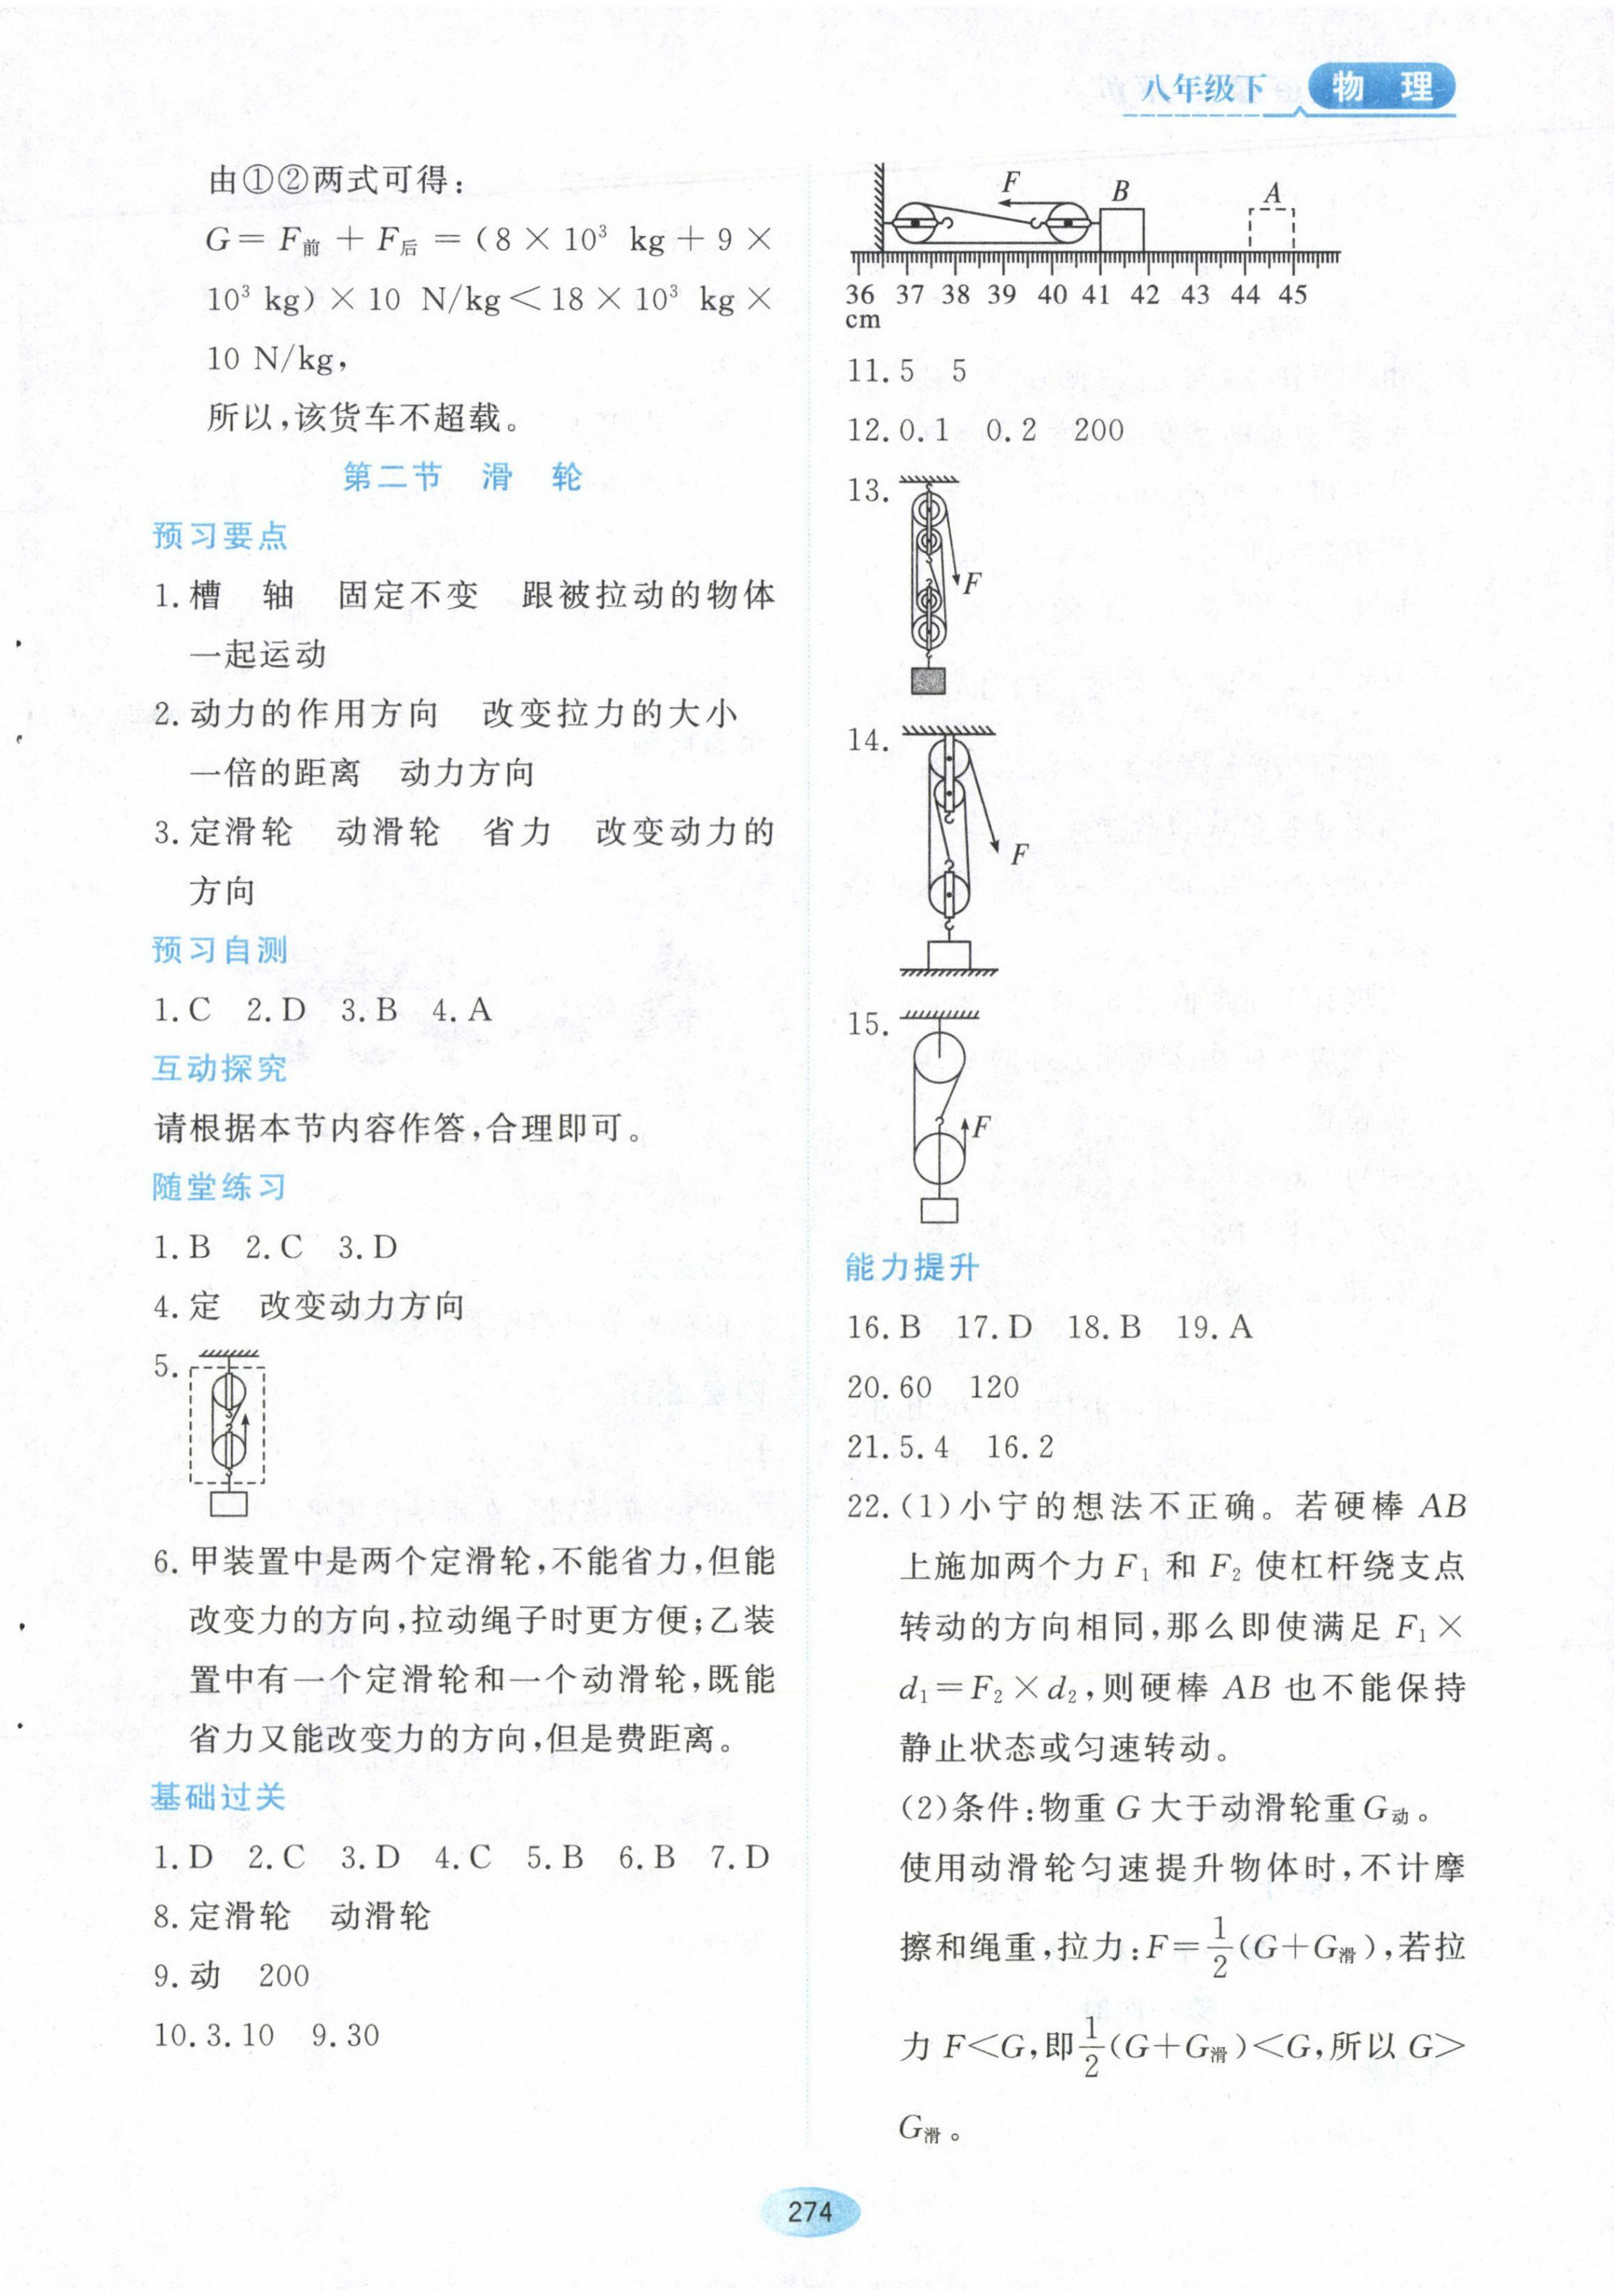 八年级下 物 理
由①②两式可得:
G=F前+F后=(8×10³ kg+9×
10³ kg)×10 N/kg<18×10³ kg×
10 N/kg,
所以,该货车不超载。
第二节 滑 轮
预习要点
1.槽 轴 固定不变 跟被拉动的物体
一起运动
2.动力的作用方向 改变拉力的大小
一倍的距离 动力方向
3.定滑轮 动滑轮 省力 改变动力的
方向
预习自测
1.C 2.D 3.B 4.A
互动探究
请根据本节内容作答,合理即可。
随堂练习
1.B 2.C 3.D
4.定 改变动力方向
5.
6.甲装置中是两个定滑轮,不能省力,但能
改变力的方向,拉动绳子时更方便;乙装
置中有一个定滑轮和一个动滑轮,既能
省力又能改变力的方向,但是费距离。
基础过关
1.D 2.C 3.D 4.C 5.B 6.B 7.D
8.定滑轮 动滑轮
9.动 200
10.3.10 9.30
F B A
36 37 38 39 40 41 42 43 44 45
cm
11.5 5
12.0.1 0.2 200
13.
F
14.
F
15.
F
能力提升
16.B 17.D 18.B 19.A
20.60 120
21.5.4 16.2
22.(1)小宁的想法不正确。若硬棒 AB
上施加两个力 F₁ 和 F₂ 使杠杆绕支点
转动的方向相同,那么即使满足 F₁×
d₁=F₂×d₂,则硬棒 AB 也不能保持
静止状态或匀速转动。
(2)条件:物重 G 大于动滑轮重 G动。
使用动滑轮匀速提升物体时,不计摩
擦和绳重,拉力:F=1/2(G+G滑),若拉
力 F<G,即1/2(G+G滑)<G,所以 G>
G滑。
274